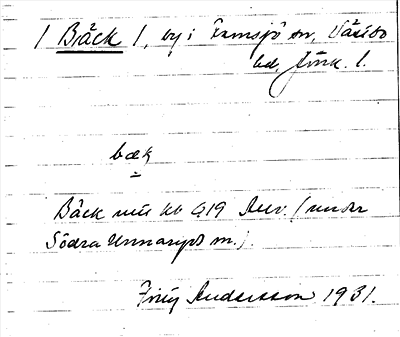 / Bäck /, by i Femsjö sn, Västbo
hd, Jönk. l.
bæk
Bäck mtl kb 419 Rev. (under
Södra Unnaryd sn.)
Andersson 1931.